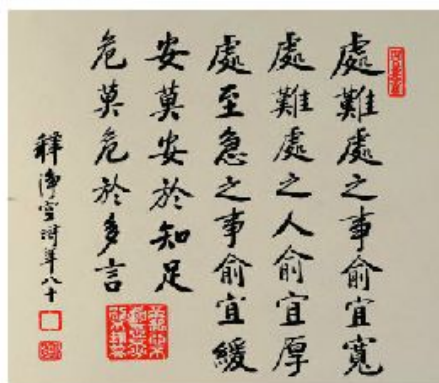 處難處之事俞宜寬
處難處之人俞宜厚
處至急之事俞宜緩
安莫安於知足
危莫危於多言
釋淨空時年八十